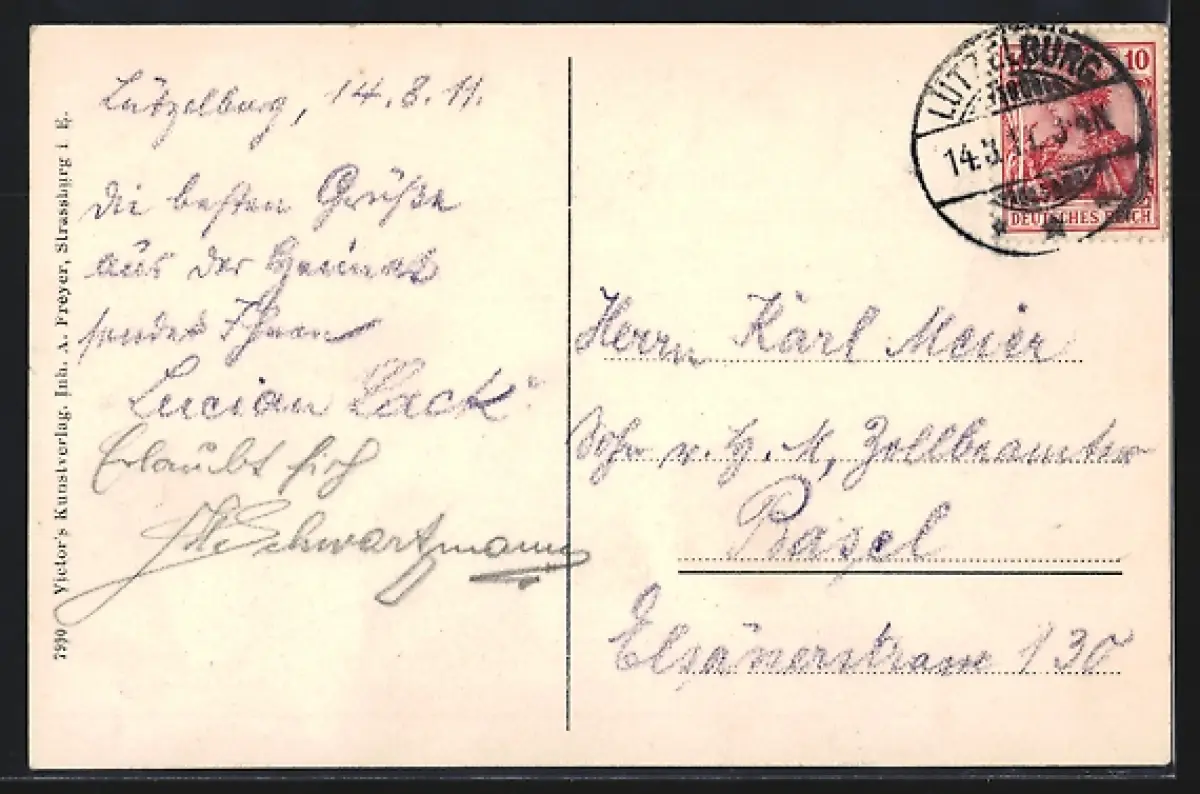 Lützelburg, 14.8.11.
Die besten Grüße
aus der Heimat
sendet Ihnen
Lucian Lack
Erlaubt sich
Schwartzmann
7990 Victor's Kunstverlag, Inh. A. Freyer, Strassburg i. E.
LÜTZELBURG
14.8.11.
10
DEUTSCHES REICH
Herrn Karl Meier
v. H. M, Zollbeamter
Basel
Elsänerstrasse 130